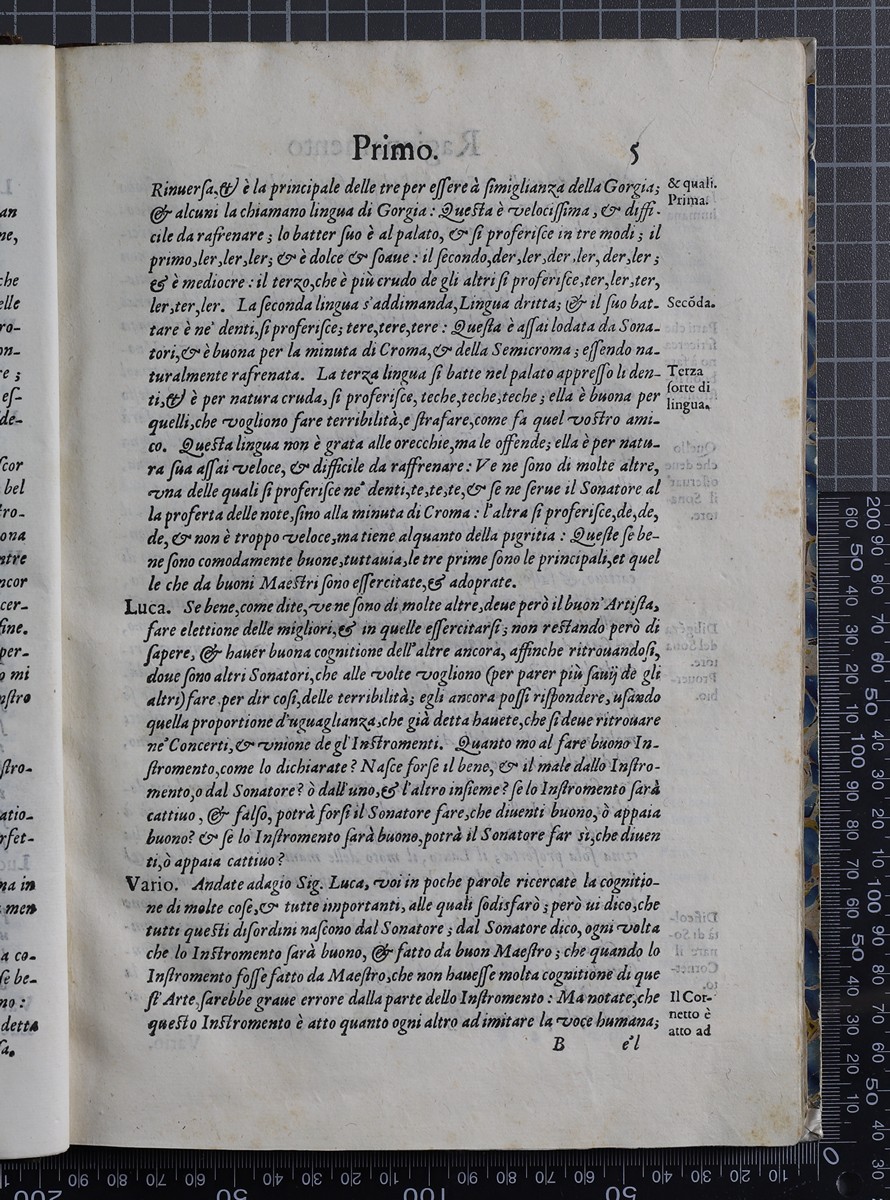 Primo. 5
Rinuersa,& è la principale delle tre per essere à simiglianza della Gorgia; & quali.
& alcuni la chiamano lingua di Gorgia: Questa è velocissima, & diffi- Prima.
cile da rafrenare; lo batter suo è al palato, & si proferisce in tre modi; il
primo,ler,ler,ler; & è dolce & soaue: il secondo,der,ler,der,ler, der,ler;
& è mediocre: il terzo,che è più crudo de gli altri si proferisce,ter,ler,ter,
ler,ter,ler. La seconda lingua s'addimanda,Lingua dritta; & il suo bat- Secõda.
tare è ne' denti,si proferisce; tere,tere,tere: Questa è assai lodata da Sona-
tori,& è buona per la minuta di Croma,& della Semicroma; essendo na-
turalmente rafrenata. La terza lingua si batte nel palato appresso li den- Terza
ti,& è per natura cruda, si proferisce, teche,teche,teche; ella è buona per sorte di
quelli,che vogliono fare terribilità,e strafare,come fa quel vostro ami- lingua.
co. Questa lingua non è grata alle orecchie,ma le offende; ella è per natu-
ra sua assai veloce, & difficile da raffrenare: Ve ne sono di molte altre,
vna delle quali si proferisce ne' denti,te,te,te,& se ne serue il Sonatore al
la proferta delle note,sino alla minuta di Croma: l'altra si proferisce,de,de,
de,& non è troppo veloce,ma tiene alquanto della pigritia: Queste se be-
ne sono comodamente buone,tuttauia,le tre prime sono le principali,et quel
le che da buoni Maestri sono essercitate,& adoprate.
Luca. Se bene,come dite,ve ne sono di molte altre,deue però il buon' Artista,
fare elettione delle migliori,& in quelle essercitarsi; non restando però di
sapere, & hauer buona cognitione dell'altre ancora, affinche ritrouandosi,
doue sono altri Sonatori,che alle volte vogliono (per parer più sauij de gli
altri)fare per dir cosi,delle terribilità; egli ancora possi rispondere, usando
quella proportione d'uguaglianza,che già detta hauete,che si deue ritrouare
ne' Concerti,& vnione de gl'Instromenti. Quanto mo al fare buono In-
stromento,come lo dichiarate? Nasce forse il bene, & il male dallo Instro-
mento,o dal Sonatore? ò dall'uno,& l'altro insieme? se lo Instromento sarà
cattiuo, & falso, potrà forsi il Sonatore fare,che diuenti buono, ò appaia
buono? & se lo Instromento sarà buono,potrà il Sonatore far sì,che diuen
ti,ò appaia cattiuo?
Vario. Andate adagio Sig. Luca, voi in poche parole ricercate la cognitio-
ne di molte cose,& tutte importanti, alle quali sodisfarò; però ui dico,che
tutti questi disordini nascono dal Sonatore; dal Sonatore dico, ogni volta
che lo Instromento sarà buono, & fatto da buon Maestro; che quando lo
Instromento fosse fatto da Maestro,che non hauesse molta cognitione di que
st'Arte,sarebbe graue errore dalla parte dello Instromento: Ma notate,che Il Cor-
questo Instromento è atto quanto ogni altro ad imitare la voce humana; netto è
atto ad
B e'l